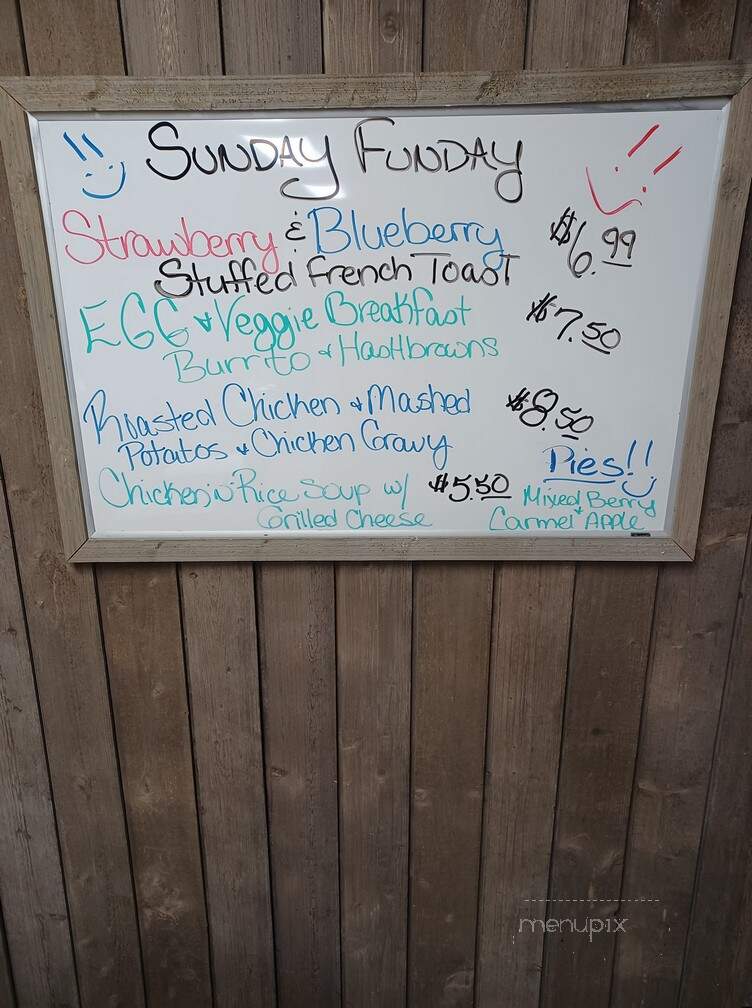 SUNDAY FUNDAY
Strawberry & Blueberry $6.99
Stuffed French Toast
EGG & Veggie Breakfast $7.50
Burrito & Hashbrowns
Roasted Chicken & Mashed $8.50
Potatos & Chicken Gravy
Pies!!
Chicken 'n' Rice Soup w/ $5.50 Mixed Berry
Grilled Cheese
& Carmel Apple
menupix